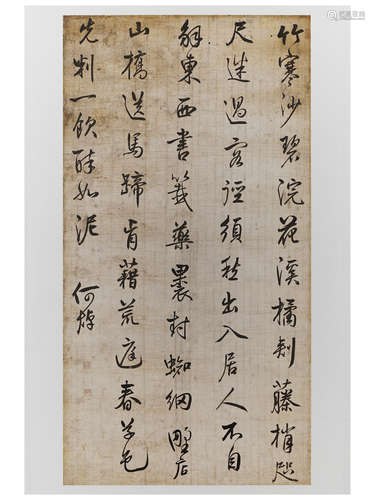 竹寒沙碧浣花溪橘刺藤梢咫
尺迷過客徑須愁出入居人不自
解東西書籤藥裹封蜘網野店
山橋送馬蹄肯藉荒庭春草色
先判一飲醉如泥 何焯